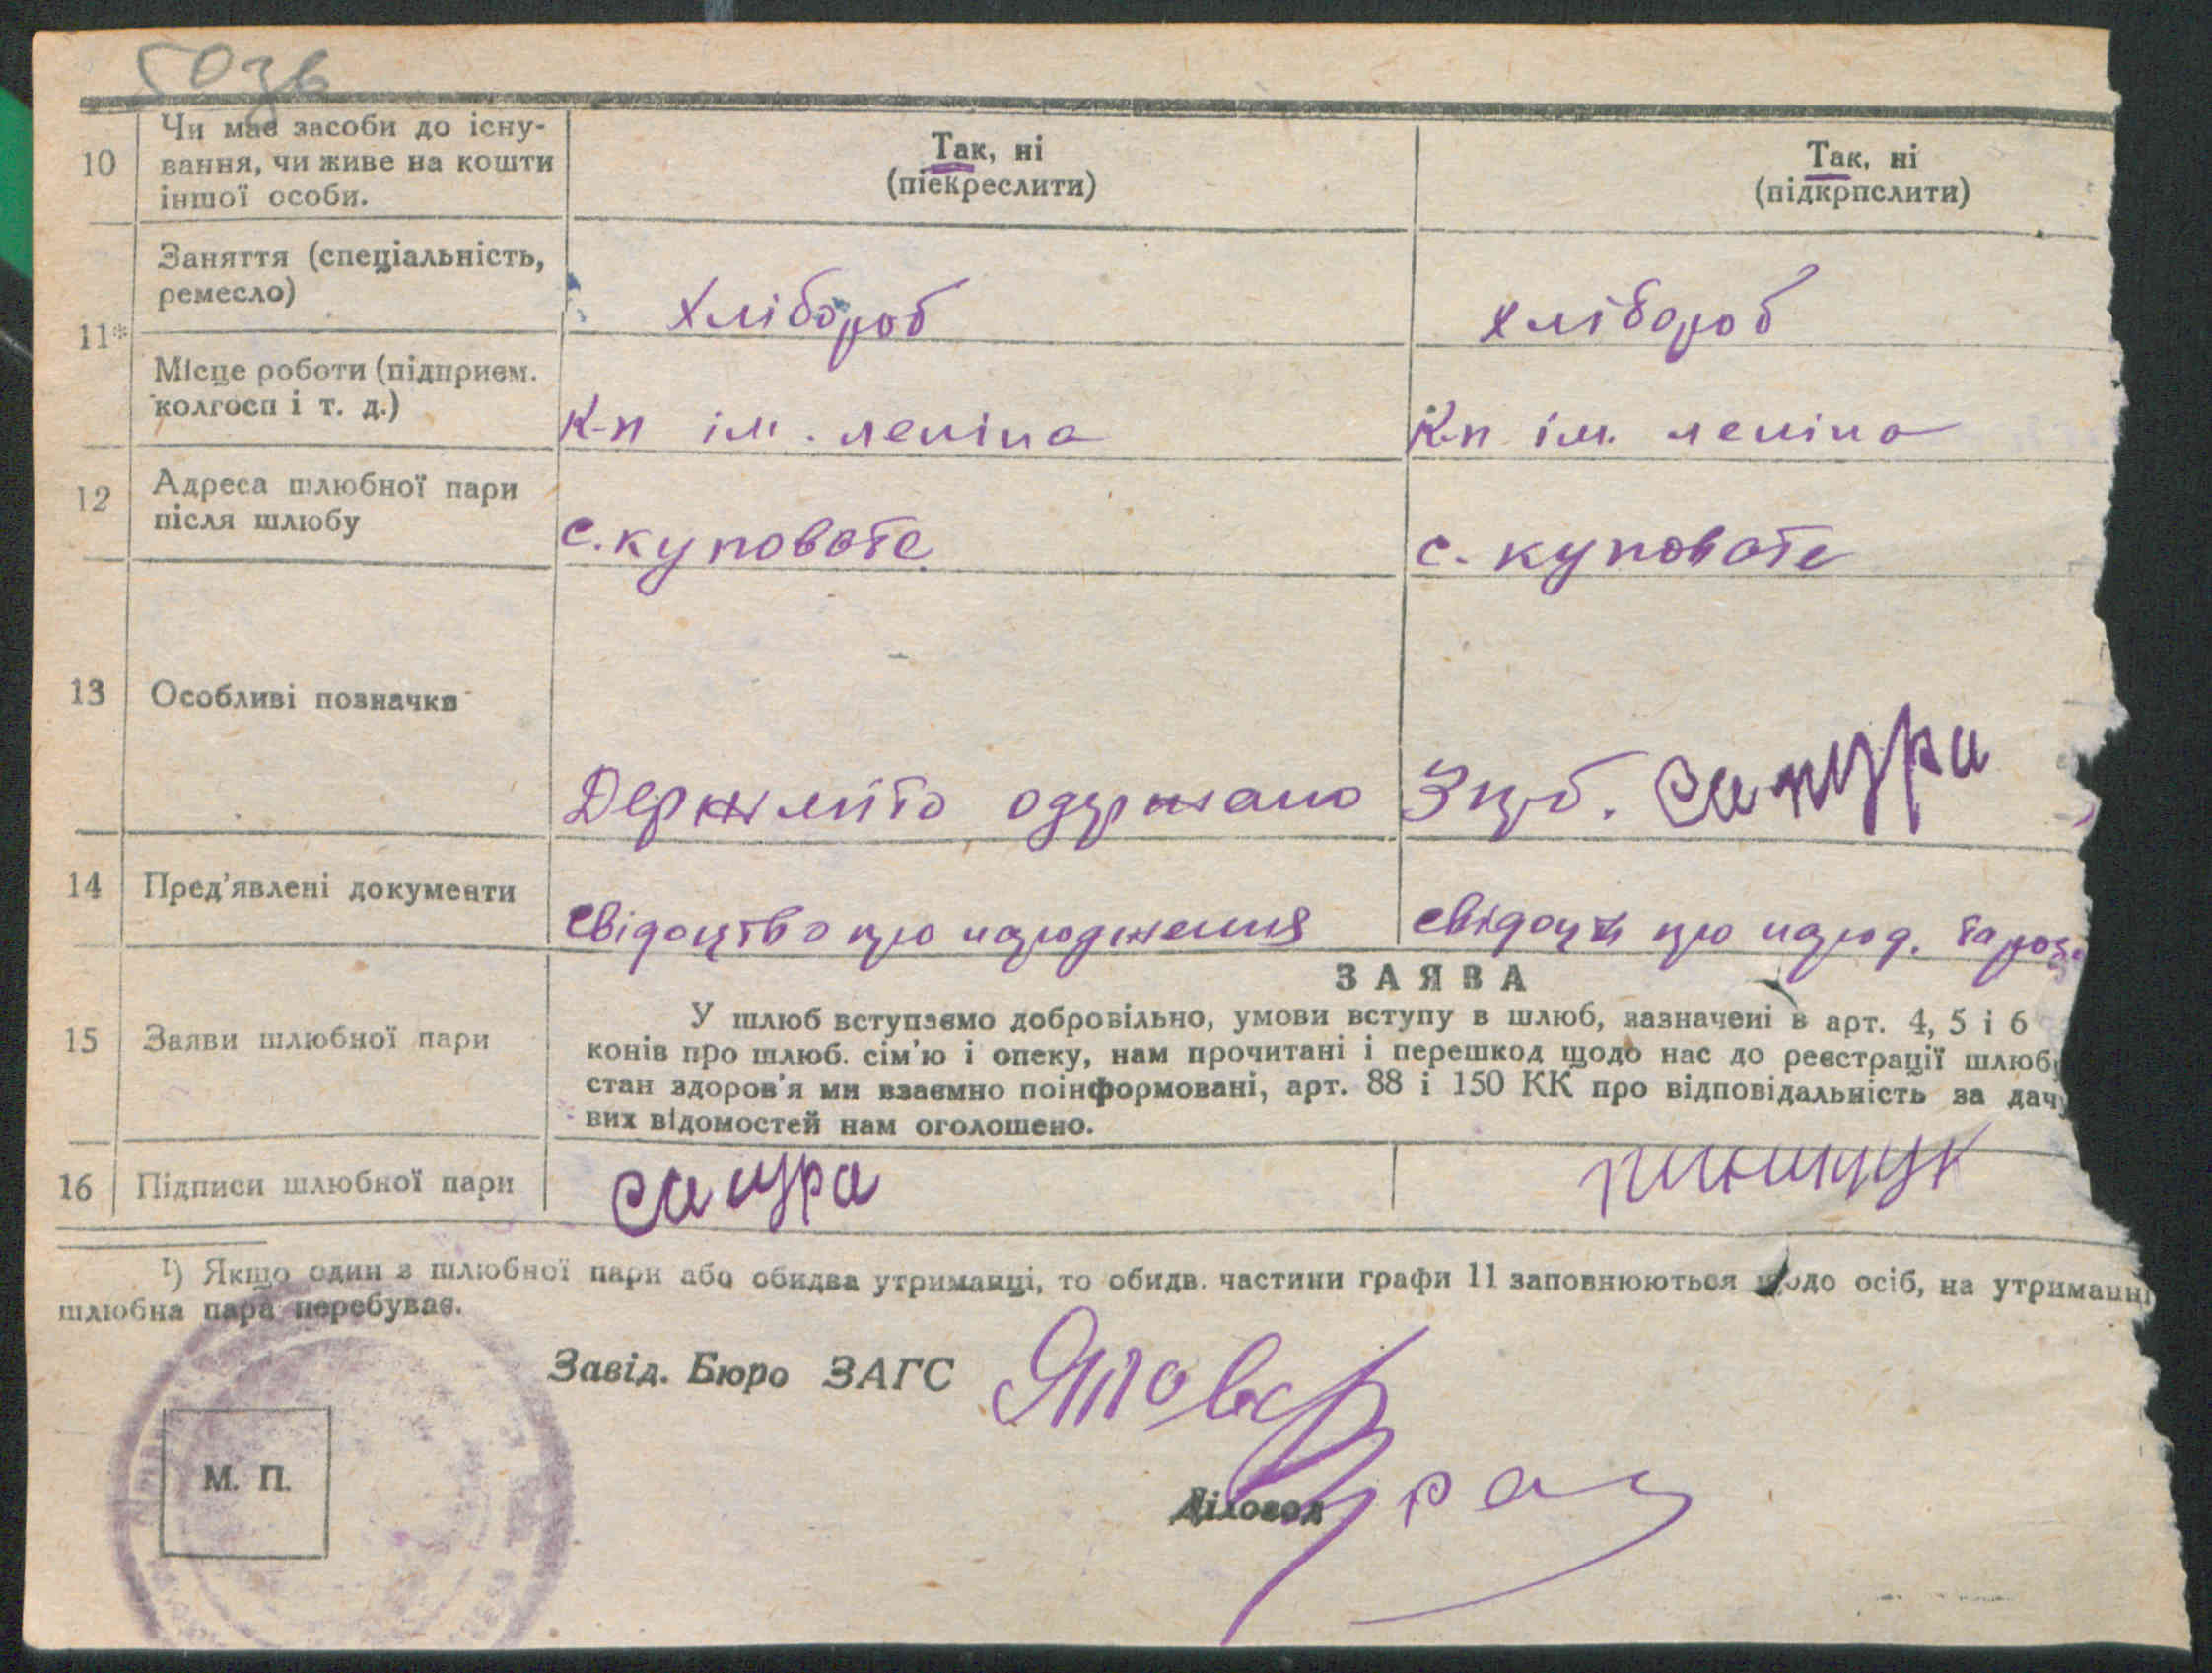 503в
10
Чи має засоби до існу-
вання, чи живе на кошти
іншої особи.
Так, ні
(піекреслити)
Так, ні
(підкрпслити)
11*
Заняття (спеціальність,
ремесло)
Хлібороб
хлібороб
Місце роботи (підприєм.
колгосп і т. д.)
К-п ім. леніна
К-п ім. леніна
12
Адреса шлюбної пари
після шлюбу
с. куповате
с. куповате
13
Особливі позначки
Держмито одержано
3 крб. сапура
14
Пред'явлені документи
свідоцтво про народження
свідоцт про народ. та роз
15
Заяви шлюбної пари
ЗАЯВА
У шлюб вступаємо добровільно, умови вступу в шлюб, зазначені в арт. 4, 5 і 6
конів про шлюб. сім'ю і опеку, нам прочитані і перешкод щодо нас до реєстрації шлюбу
стан здоров'я ми взаємно поінформовані, арт. 88 і 150 КК про відповідальність за дачу
вих відомостей нам оголошено.
16
Підписи шлюбної пари
сапура
¹) Якщо один з шлюбної пари або обидва утриманці, то обидв. частини графи 11 заповнюються щодо осіб, на утриманні
шлюбна пара перебуває.
Завід. Бюро ЗАГС
М. П.
Діловод